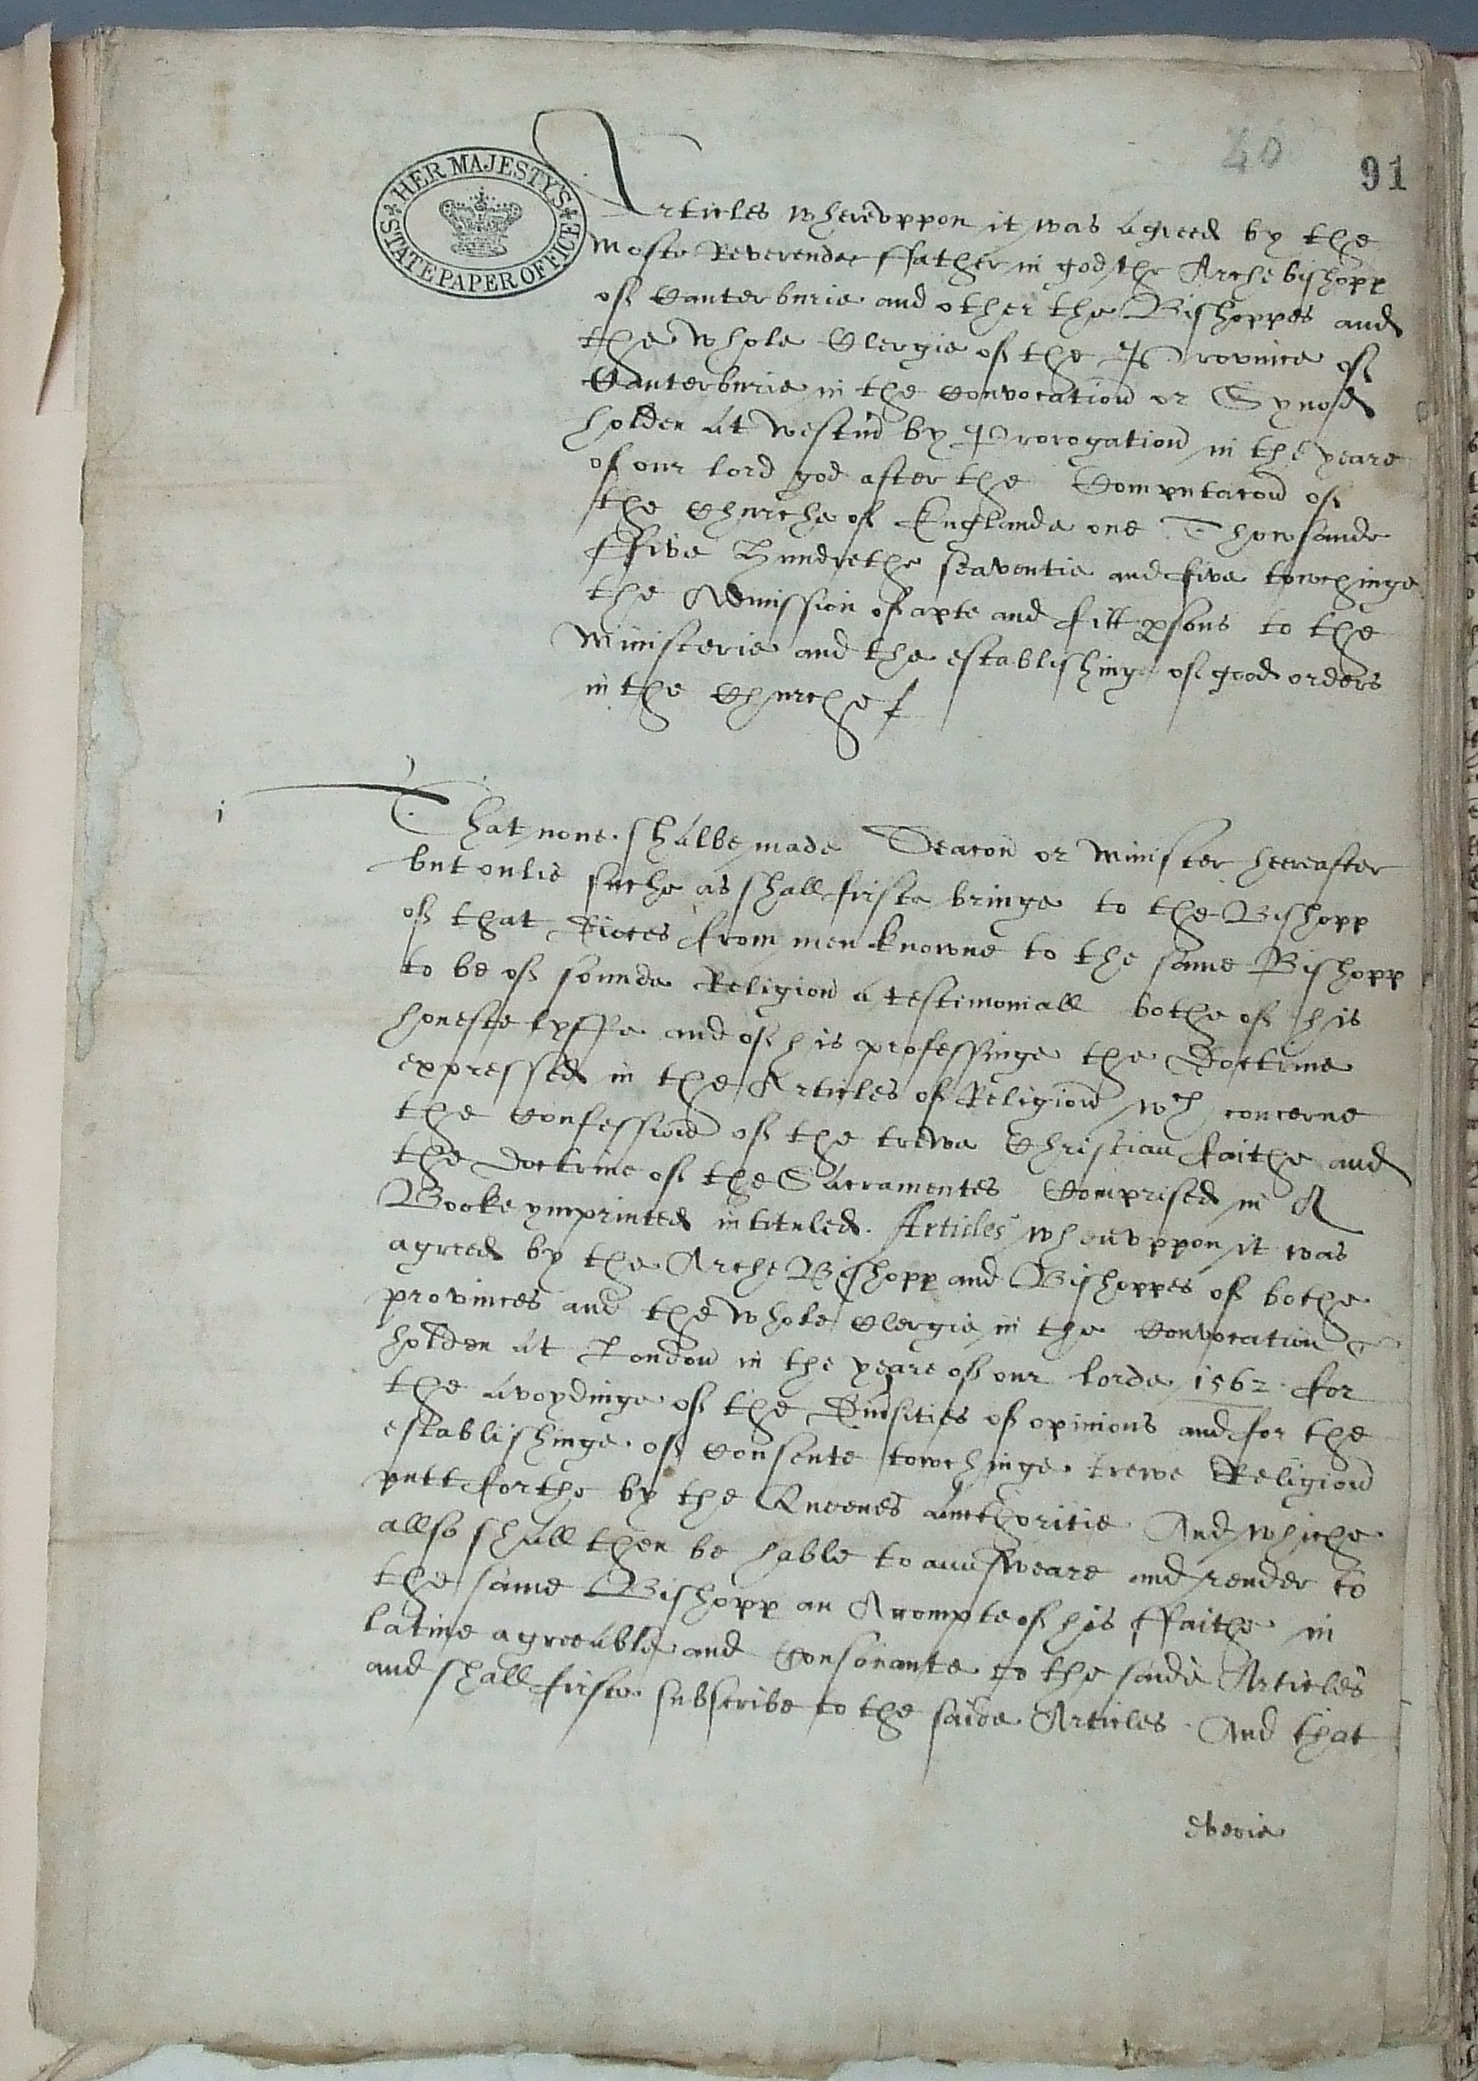 40
91
HER MAJESTY'S
STATE PAPER OFFICE
Articles whereuppon it was agreed by the
moste Reverende ffather in god the Archebishopp
of Canterburie and other the Bishoppes and
the whole Clergie of the Province of
Canterburie in the Convocation or Synod
holden at Westm by Prorogation in the yeare
of our lord god after the Computacon of
the Churche of Englande one Thowsande
ffive Hundrethe seaventie and five towchinge
the Admission of apte and fitt psons to the
Ministerie and the establishinge of good orders
in the Churche
i
That none shalbe made Deacon or Minister hereafter
but onlie suche as shall firste bringe to the Bishopp
of that Dioces from men knowne to the same Bishopp
to be of sounde Religion a testimoniall bothe of his
honeste lyffe and of his professinge the Doctrine
expressed in the Articles of Religion wch concerne
the Confession of the trewe Christian faithe and
the doctrine of the Sacramentes Comprised in A
Booke ymprinted intituled. Articles wheruppon it was
agreed by the ArcheBishopp and Bishoppes of bothe
provinces and the whole Clergie in the Convocation
holden at London in the yeare of our lorde 1562 for
the avoydinge of the Divsities of opinions and for the
establishinge of Consente towchinge trewe Religion
putt forthe by the Queenes authoritie And whiche
allso shall then be hable to aunsweare and render to
the same Bishopp an Accompte of his ffaithe in
latine agreeable and Consonante to the saide Articles
and shall firste subscribe to the saide Articles. And that
everie